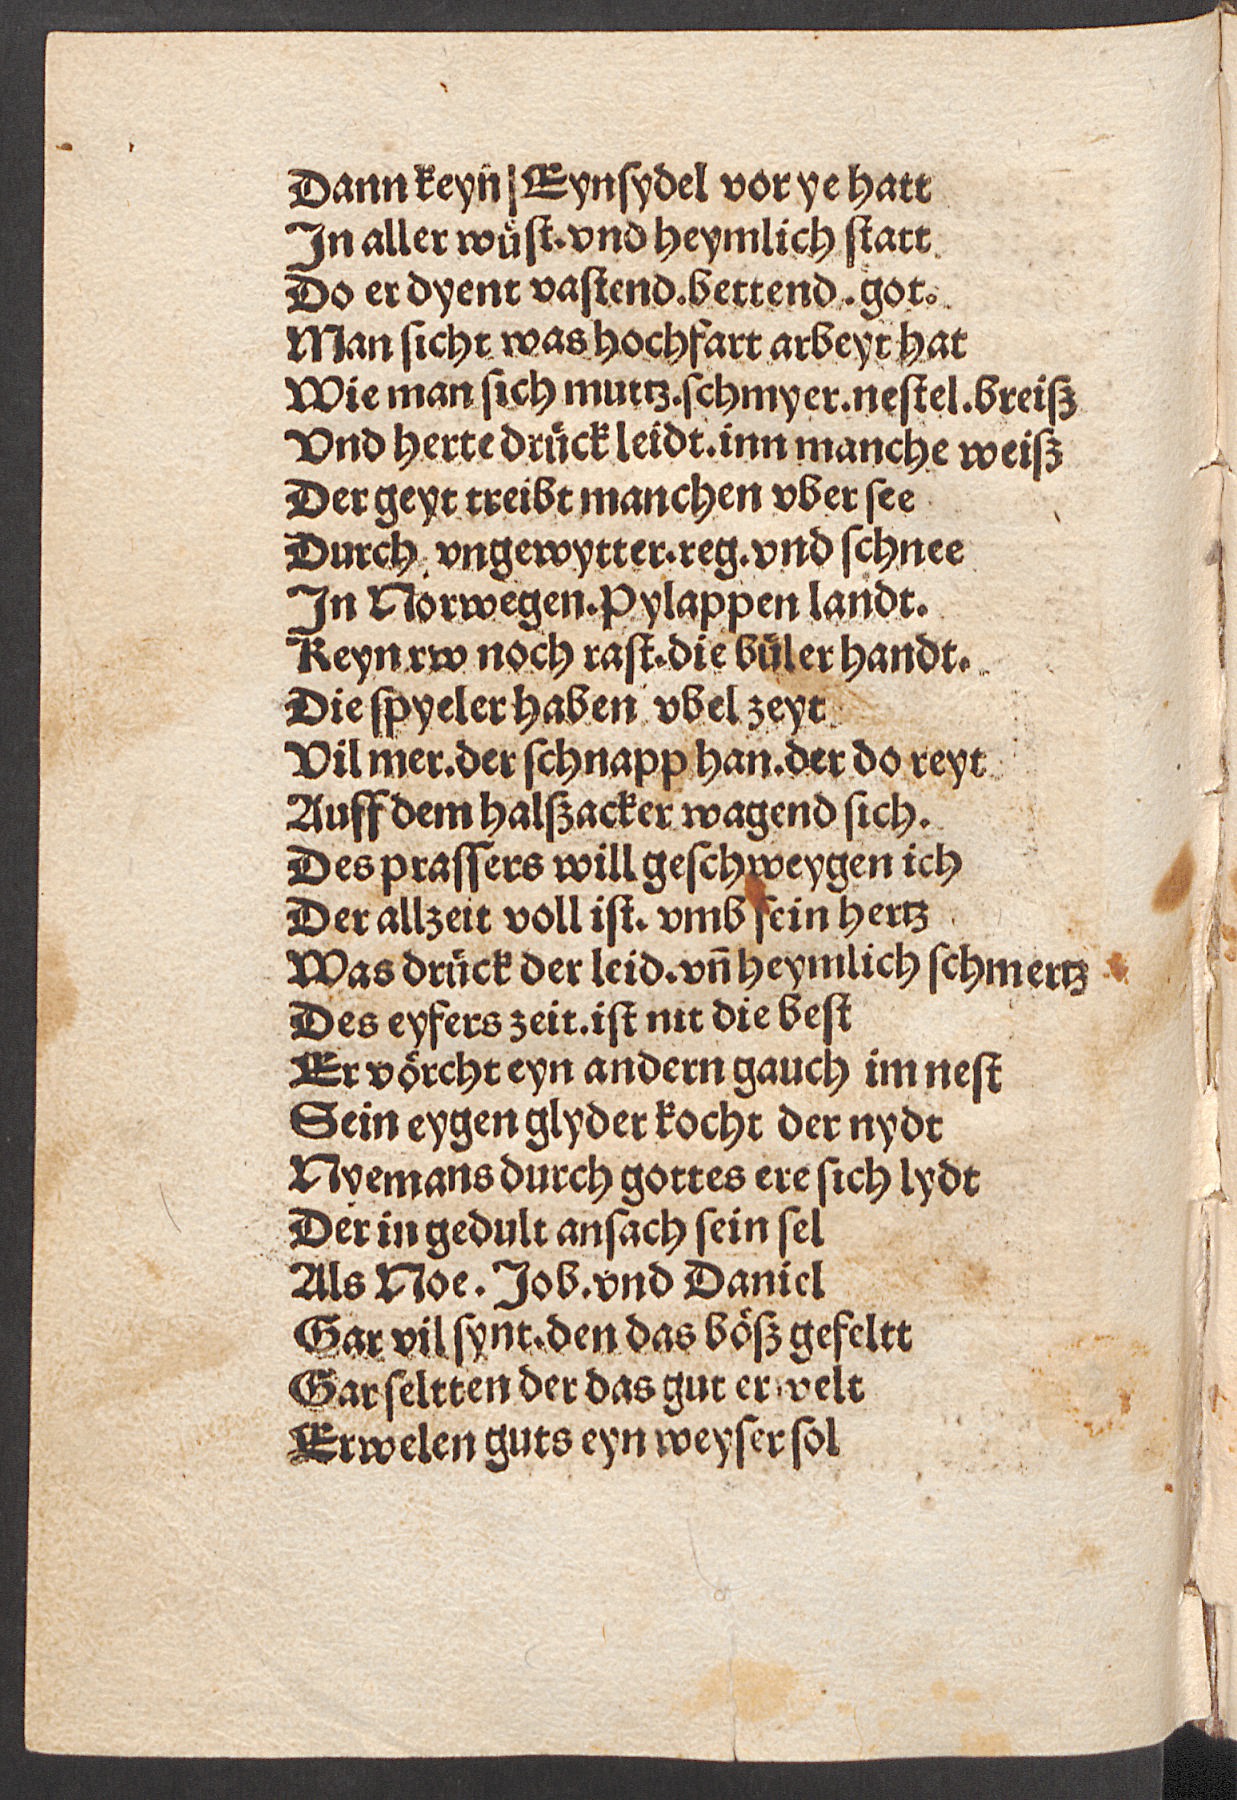 Dann keyn | Eynsydel vor ye hatt
In aller wuͤst. vnd heymlich statt
Do er dyent vastend. bettend. got.
Man sicht was hochfart arbeyt hat
Wie man sich muttz. schmyer. nestel. breisz
Vnd herte druͤck leidt. inn manche weisz
Der geyt treibt manchen vber see
Durch vngewytter. reg. vnd schnee
In Norwegen. Pylappen landt.
Keyn rw noch rast. die buͤler handt.
Die spyeler haben vbel zeyt
Vil mer. der schnapp han. der do reyt
Auff dem halszacker wagend sich.
Des prassers will geschweygen ich
Der allzeit voll ist. vmb sein hertz
Was druͤck der leid. vn̄ heymlich schmertz
Des eyfers zeit. ist nit die best
Er voͤrcht eyn andern gauch im nest
Sein eygen glyder kocht der nydt
Nyemans durch gottes ere sich lydt
Der in gedult ansach sein sel
Als Noe. Job. vnd Daniel
Gar vil synt. den das boͤsz gefeltt
Gar seltten der das gut erwelt
Erwelen guts eyn weyser sol